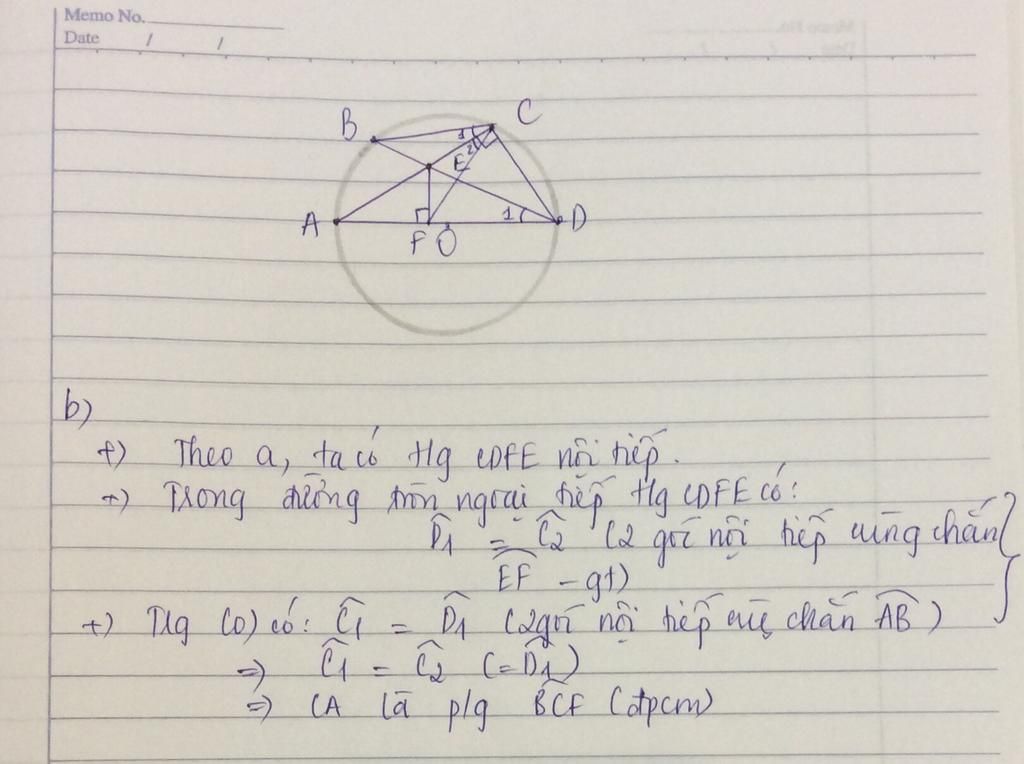 Memo No.
Date / /
B
C
1
2
E
A
1
D
F O
b)
+) Theo a, ta có t/g CDFE nội tiếp.
+) Trong đường tròn ngoại tiếp t/g CDFE có:
D̂1 = Ĉ2 (2 góc nội tiếp cùng chắn
EF - gt)
+) Trg (O) có: Ĉ1 = D̂1 (2 góc nội tiếp cùg chắn AB)
=> Ĉ1 = Ĉ2 (= D̂1)
=> CA là p/g BĈF (đpcm)